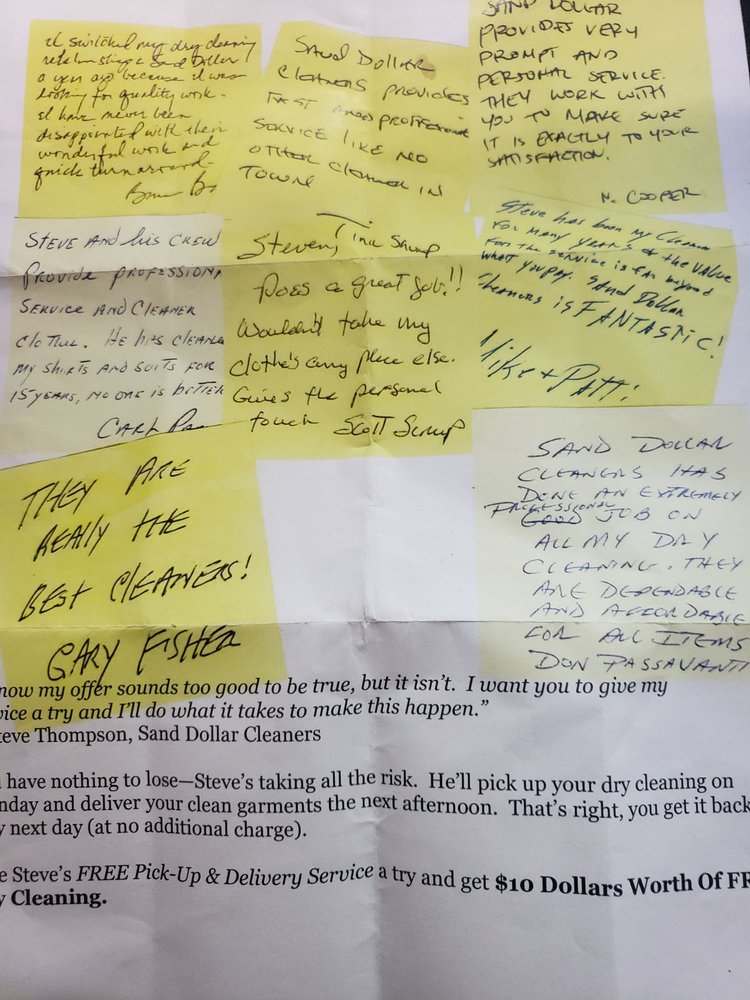 I switched my dry cleaning
relationship to Sand Dollar
a year ago because I was
looking for quality work.
I have never been
disappointed with their
wonderful work and
quick turnaround.
SAND DOLLAR
CLEANERS PROVIDES
FAST AND PROFESSIONAL
SERVICE LIKE NO
OTHER CLEANER IN
TOWN
SAND DOLLAR
PROVIDES VERY
PROMPT AND
PERSONAL SERVICE.
THEY WORK WITH
YOU TO MAKE SURE
IT IS EXACTLY TO YOUR
SATISFACTION.
N. COOPER
STEVE AND his CREW
PROVIDE PROFESSIONAL
SERVICE AND CLEANER
CLOTHES. HE HAS CLEANED
MY SHIRTS AND SUITS FOR
15 YEARS, NO ONE IS BETTER
CARL
Steven,
Does a great job!!
Wouldn't take my
clothe's any place else.
Gives the personal
touch
Scott
Steve has been my Cleaner
for many years & the value
for the service is far beyond
what you pay. Sand Dollar
Cleaners is FANTASTIC!
Mike + Patti
THEY ARE
REALLY THE
BEST CLEANERS!
GARY FISHER
SAND DOLLAR
CLEANERS HAS
DONE AN EXTREMELY
PROFESSIONAL
GOOD JOB ON
ALL MY DRY
CLEANING. THEY
ARE DEPENDABLE
AND AFFORDABLE
FOR ALL ITEMS
DON PASSAVANTI
now my offer sounds too good to be true, but it isn't. I want you to give my
vice a try and I'll do what it takes to make this happen."
teve Thompson, Sand Dollar Cleaners
have nothing to lose—Steve's taking all the risk. He'll pick up your dry cleaning on
nday and deliver your clean garments the next afternoon. That's right, you get it back
y next day (at no additional charge).
e Steve's FREE Pick-Up & Delivery Service a try and get $10 Dollars Worth Of FR
y Cleaning.